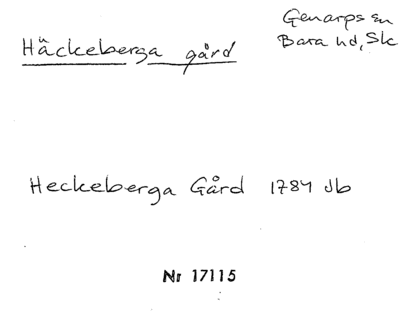 Häckeberga gård
Genarps sn
Bara hd, Sk
Heckeberga Gård 1784 Jb
Nr 17115